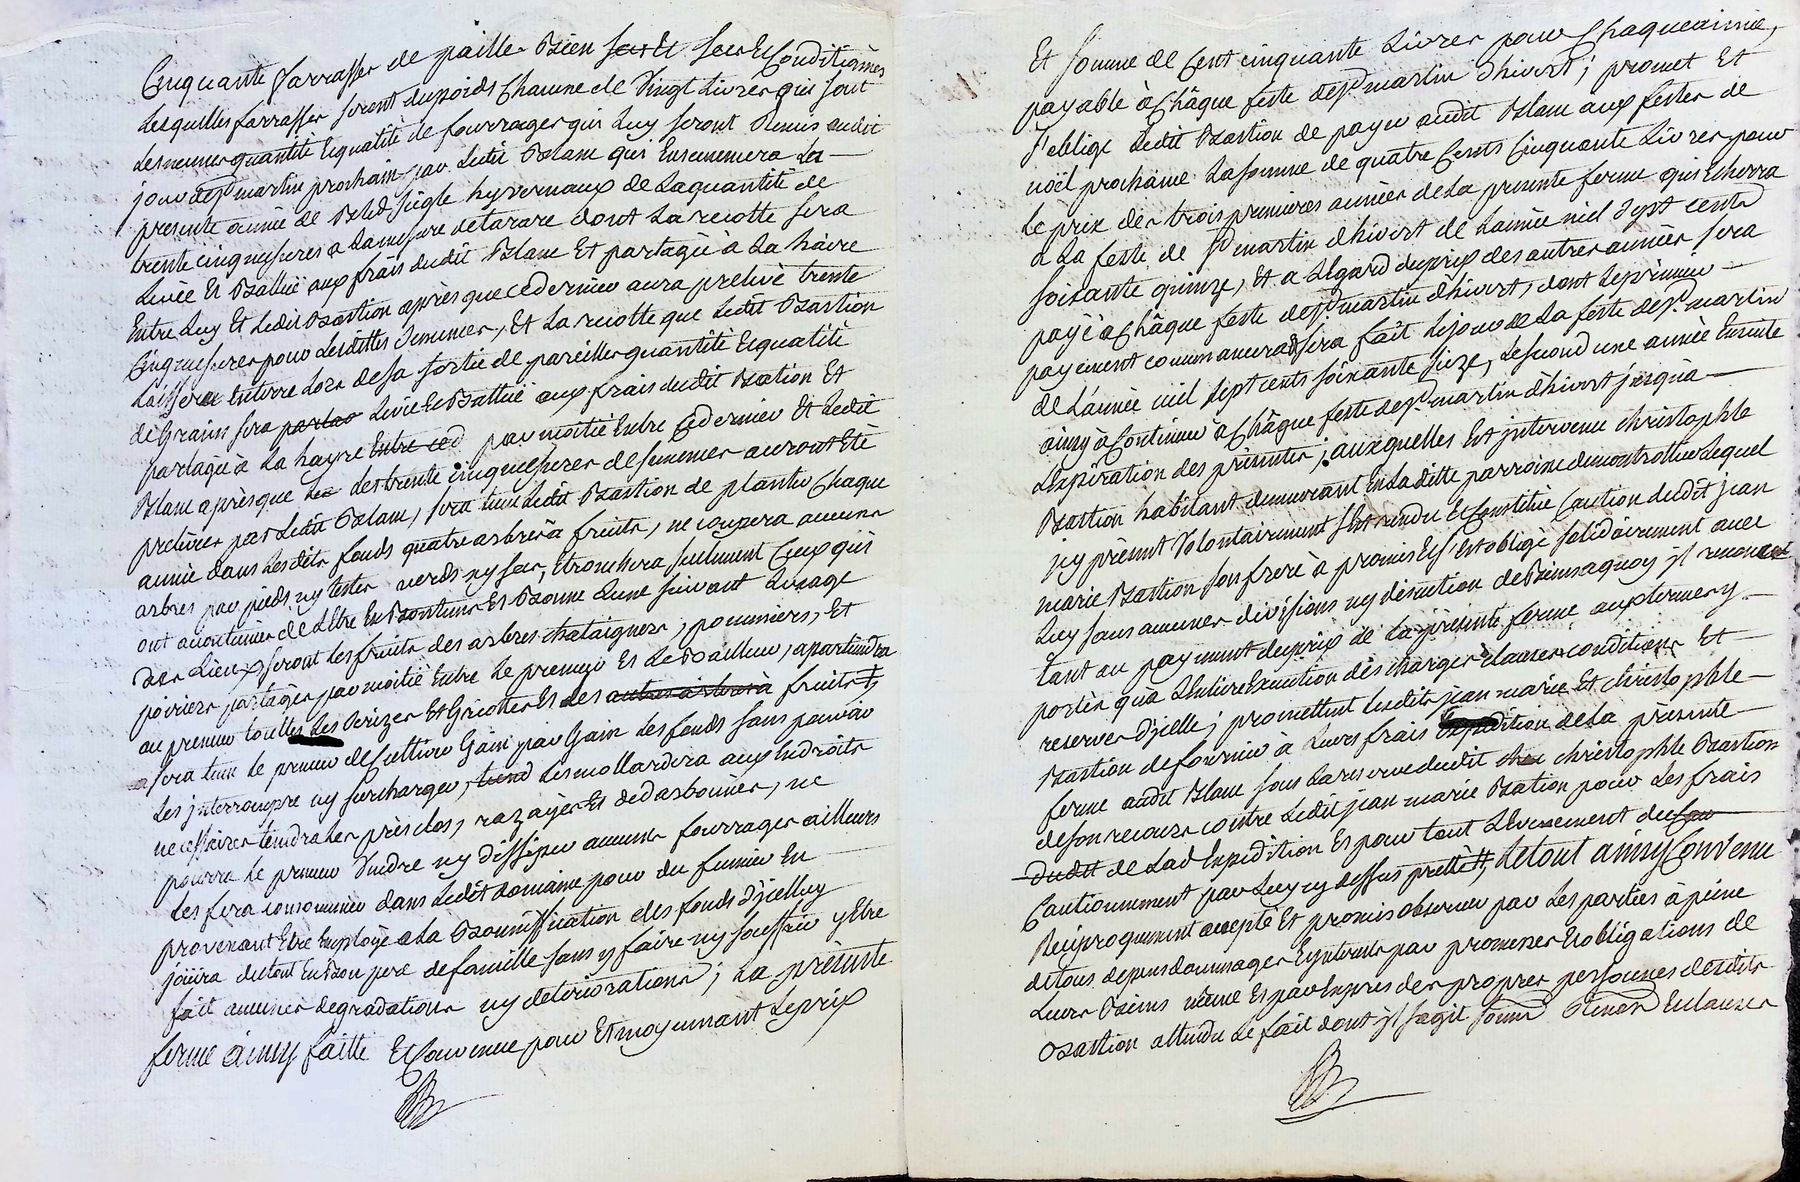 Cinquante farrasses de paille Bien secs Et secs Et Conditionnés
Lesquelles farrasses seront dupoids Chacune de Vingt Livres qui sont
Lesmemes quantité Equalité de fourrages qui Luy seront Remis audit
jour de st martin prochain par Ledit Blanc qui Ensemencera La
presente année de Bled seigle hyvernaux de Laquantité de
trente cinq mesures a Lamesure de tarare dont La recolte sera
Levée Et Battüe aux frais dudit Blanc Et partagée à La hàire
Entre Luy Et Ledit Bastion après que ce dernier aura prelevé trente
Cinq mesures pour Lesdittes semences, Et La recolte que Ledit Bastion
Laissera Enterre Lors de sa sortie de pareilles quantité Equalité
de Grains sera partag Levée Et Battüe aux frais dudit Bastion Et
partagée à La hayre Entre ced par moitié Entre Cedernier Et Ledit
Blanc aprèsque Les Lestrente cinq mesures de semences auront Eté
prelevées par Ledit Blanc, sera tenu Ledit Bastion de planter Chaque
année dans Lesdits fonds quatre arbres à fruits, ne coupera aucuns
arbres par pieds ny testes verds ny secs, Etronchera seulement Ceux qui
ont accoutumés de L'Etre En Bontems Et Bonne Lune suivant Lusage
des Lieux, seront Les fruits des arbres chataigners, pommiers, Et
poiriers partagés par moitié Entre Le preneur Et Le Bailleur, apartiendra
au preneur toutes Les Cerizes Et Griottes Et Les autres arbres à fruits ‡
sera tenu Le preneur de Cultiver Gain par Gain Les fonds sans pouvoir
Les jnterrompre ny surcharger, tiend Lesmollardera aux Endroits
necessaires tendra Les près clos, razayés Et dedarbonnés, ne
pourra Le preneur Vendre ny dissiper aucuns fourrages ailleurs
Les fera consommer dans Ledit domaine pour du fumier En
provenant Etre Employé a La Bonniffication des fonds d'jcelluy
jouira dutout En Bon pere de famille sans y faire ny souffrir y Etre
fait aucunes degradations ny deteriorations; La présente
ferme ainsy faitte Et Convenue pour Et moyennant Le prix
Et somme de Cent cinquante Livres pour Chaque année,
payable à Châque feste de st martin d'hivert; promet Et
s'oblige Ledit Bastion de payer audit Blanc aux festes de
noël prochaine La somme de quatre Cents Cinquante Livres pour
Le prix des trois premieres années de La presente ferme qui Echerra
a La feste de st martin d'hivert de L'année mil sept cents
soixante quinze, Et a L'Egard du prix des autres années sera
payé à Châque feste de st martin d'hivert, dont Le premier
payement commancera Et sera fait Le jour de La feste de st martin
de L'année mil sept cents soixante seize, Lesecond une année Ensuite
ainsy à Continuer à Châque feste de st martin d'hivert jusqu'à
L'expiration des présentes; auxquelles Est jntervenu christophle
Bastion habitant demeurant En Laditte parroisse de montrottier Lequel
jcy présent Volontairement s'est rendu Et Constitué Caution dudit jean
marie Bastion son frere à promis Et s'est obligé solidairement avec
Luy sans aucunes divisions ny discution de Biens aquoy jl renonce
tant au payement duprix de La présente ferme aux termes y
portés qu'a L'Entiere Execution des charges clauses conditions Et
reserves d'jcelle; promettent Lesdits jean marie Et christophle
Bastion de fournir à Leurs frais Expedition de La présente
ferme audit Blanc sous La reserve dudit chri christophle Bastion
de son recours contre Ledit jean marie Bastion pour Les frais
dudit de Lad Expedition Et pour tout L'Evenement du Cau
Cautionnement par Luy cy dessus prettè ‡, Le tout ainsy Convenu
Reciproquement accepté Et promis observer par Les parties à peine
de tous depens dommages Et jnterets par promesses Et obligations de
Leurs Biens même Et par Exprès des propres personnes desdits
Bastion attendu Le fait dont jl s'agit soumd Renond Et clauses